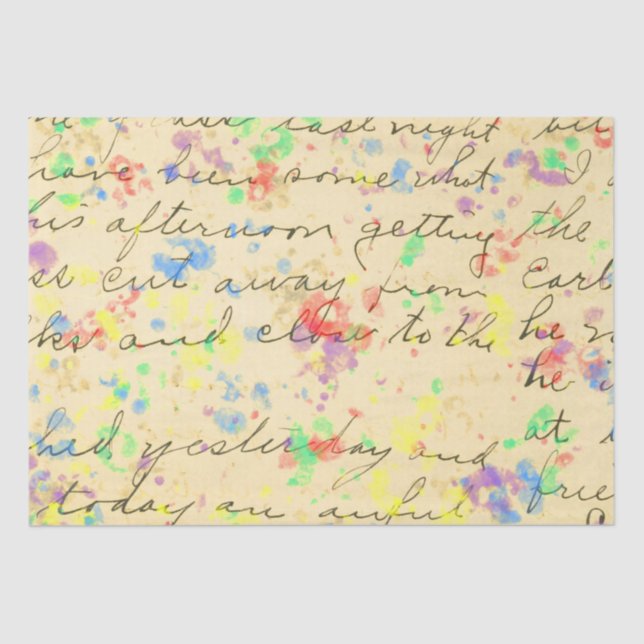 last night
have been some what
his afternoon getting
ss cut away from
ks and close to the
hed yesterday and
today an awful
but
I
the
Earl
he
he i
at
free